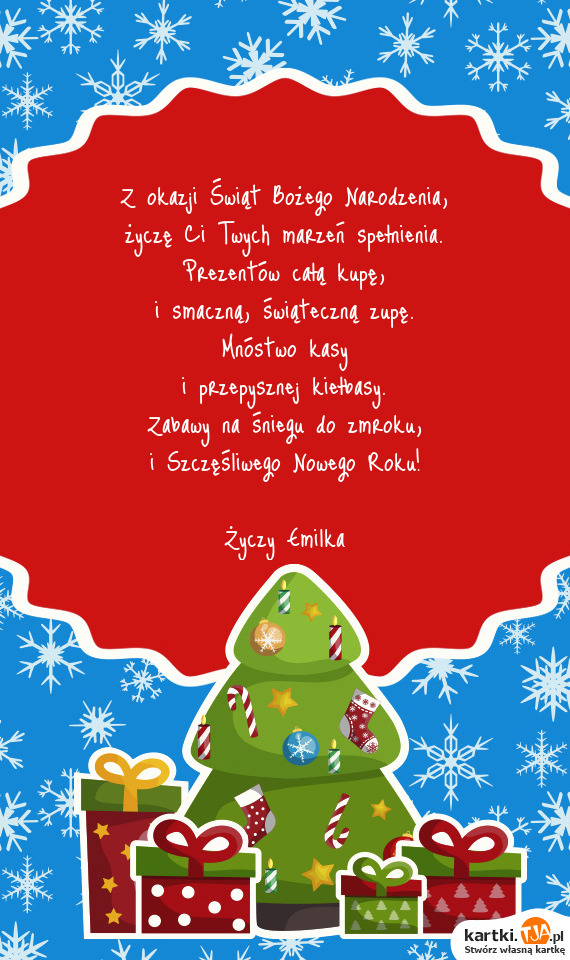 Z okazji Świąt Bożego Narodzenia,
życzę Ci Twych marzeń spełnienia.
Prezentów całą kupę,
i smaczną, świąteczną zupę.
Mnóstwo kasy
i przepysznej kiełbasy.
Zabawy na śniegu do zmroku,
i Szczęśliwego Nowego Roku!
Życzy Emilka
kartki.TJA.pl
Stwórz własną kartkę